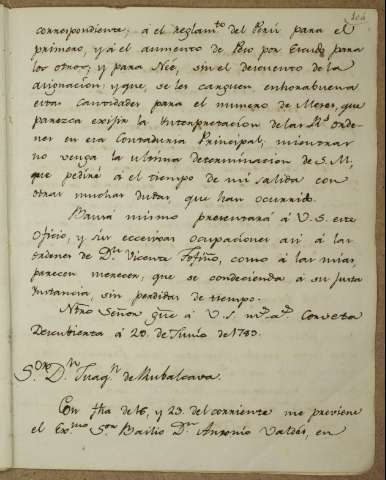 104
correspondiente, á el reglam.to del Perú para el
primero, y á el aumento de Peso por Escudo para
los otros, y para Née, sin el descuento de la
asignacion; y que, se les carguen, enhorabuena
estas cantidades para el numero de Meses, que
parezca exijir la Interpretacion de las R.s Orde-
nes en esa Contaduria Principal, mientras
no venga la ultima determinacion de S. M.,
que pediré á el tiempo de mi salida con
otras muchas dudas, que han ocurrido.
Bauzá mismo presentará á V. S. este
Oficio, y sus eccesivas ocupaciones asi á las
ordenes de D.n Vicente Tofiño, como á las mias,
parecen merecer, que se condecienda á su justa
Instancia, sin perdida de tiempo.
Ntro Señor gue á V. S. m.s a.s Corveta
Descubierta á 28 de Junio de 1789.
S.or D.n Juaq.n de Rubalcava.
Con fha de 16, y 23 del corriente me previene
el Ex.mo S.or Bailio D.n Antonio Valdés, en